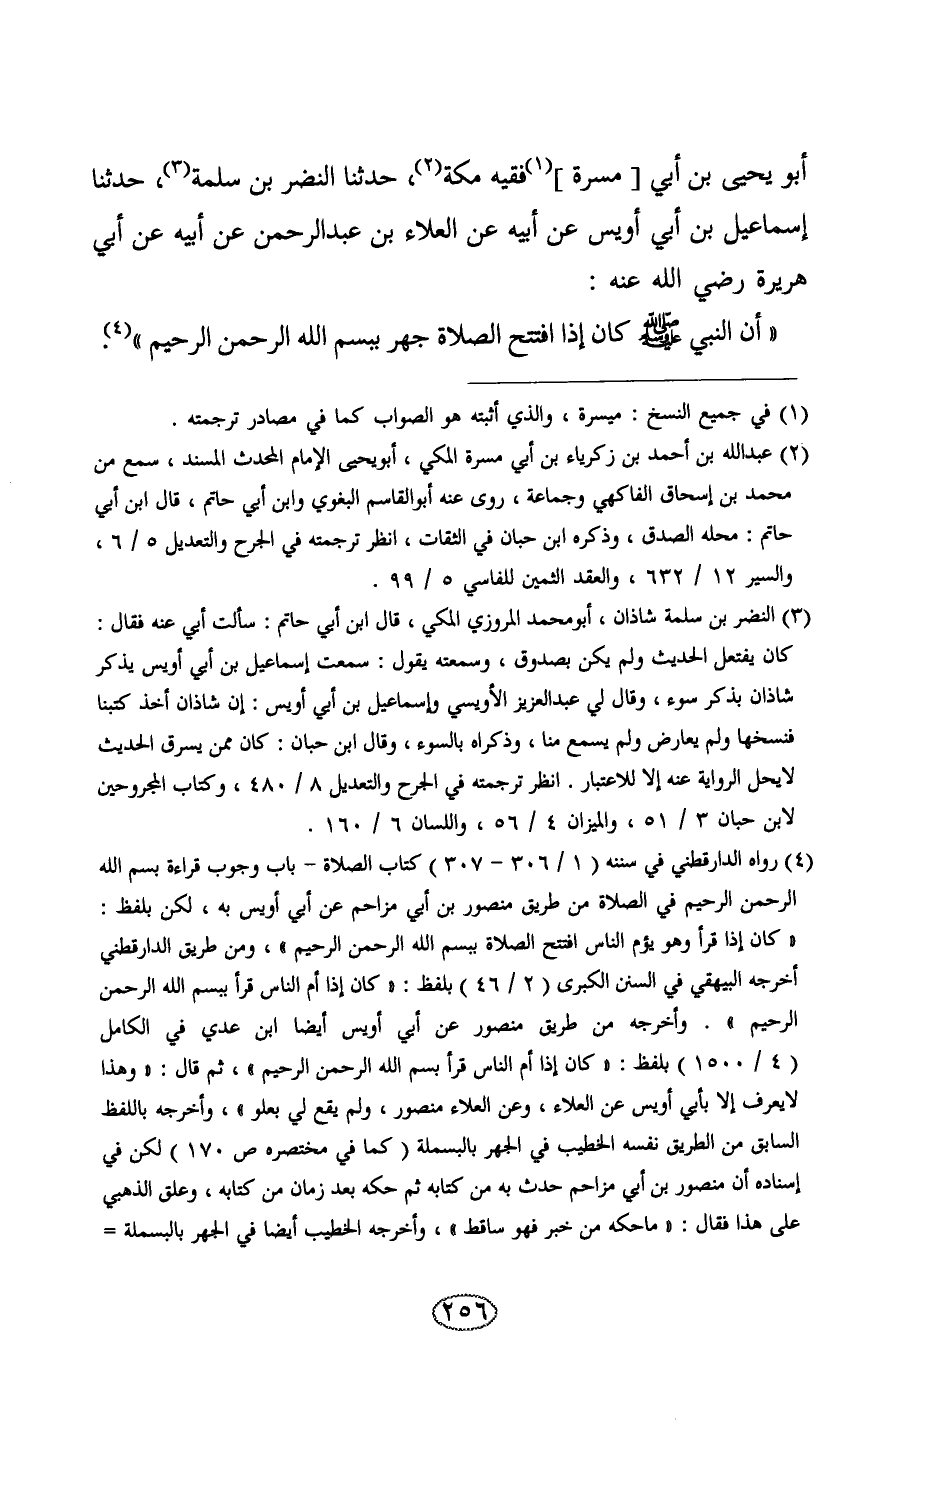 أبو يحيى بن أبي [ مسرة ](١)فقيه مكة(٢)، حدثنا النضر بن سلمة(٣)، حدثنا
إسماعيل بن أبي أويس عن أبيه عن العلاء بن عبدالرحمن عن أبيه عن أبي
هريرة رضي الله عنه :
« أن النبي ﷺ كان إذا افتتح الصلاة جهر ببسم الله الرحمن الرحيم »(٤).
(١) في جميع النسخ : ميسرة ، والذي أثبته هو الصواب كما في مصادر ترجمته .
(٢) عبدالله بن أحمد بن زكرياء بن أبي مسرة المكي ، أبويحيى الإمام المحدث المسند ، سمع من
محمد بن إسحاق الفاكهي وجماعة ، روى عنه أبوالقاسم البغوي وابن أبي حاتم ، قال ابن أبي
حاتم : محله الصدق ، وذكره ابن حبان في الثقات ، انظر ترجمته في الجرح والتعديل ٥ / ٦ ،
والسير ١٢ / ٦٣٢ ، والعقد الثمين للفاسي ٥ / ٩٩ .
(٣) النضر بن سلمة شاذان ، أبومحمد المروزي المكي ، قال ابن أبي حاتم : سألت أبي عنه فقال :
كان يفتعل الحديث ولم يكن بصدوق ، وسمعته يقول : سمعت إسماعيل بن أبي أويس يذكر
شاذان بذكر سوء ، وقال لي عبدالعزيز الأويسي وإسماعيل بن أبي أويس : إن شاذان أخذ كتبنا
فنسخها ولم يعارض ولم يسمع منا ، وذكراه بالسوء ، وقال ابن حبان : كان ممن يسرق الحديث
لايحل الرواية عنه إلا للاعتبار . انظر ترجمته في الجرح والتعديل ٨ / ٤٨٠ ، وكتاب المجروحين
لابن حبان ٣ / ٥١ ، والميزان ٤ / ٥٦ ، واللسان ٦ / ١٦٠ .
(٤) رواه الدارقطني في سننه ( ١ / ٣٠٦ - ٣٠٧ ) كتاب الصلاة - باب وجوب قراءة بسم الله
الرحمن الرحيم في الصلاة من طريق منصور بن أبي مزاحم عن أبي أويس به ، لكن بلفظ :
« كان إذا قرأ وهو يؤم الناس افتتح الصلاة ببسم الله الرحمن الرحيم » ، ومن طريق الدارقطني
أخرجه البيهقي في السنن الكبرى ( ٢ / ٤٦ ) بلفظ : « كان إذا أم الناس قرأ ببسم الله الرحمن
الرحيم » . وأخرجه من طريق منصور عن أبي أويس أيضا ابن عدي في الكامل
( ٤ / ١٥٠٠ ) بلفظ : « كان إذا أم الناس قرأ بسم الله الرحمن الرحيم » ، ثم قال : « وهذا
لايعرف إلا بأبي أويس عن العلاء ، وعن العلاء منصور ، ولم يقع لي بعلو » ، وأخرجه باللفظ
السابق من الطريق نفسه الخطيب في الجهر بالبسملة ( كما في مختصره ص ١٧٠ ) لكن في
إسناده أن منصور بن أبي مزاحم حدث به من كتابه ثم حكه بعد زمان من كتابه ، وعلق الذهبي
على هذا فقال : « ماحكه من خبر فهو ساقط » ، وأخرجه الخطيب أيضا في الجهر بالبسملة =
٢٥٦